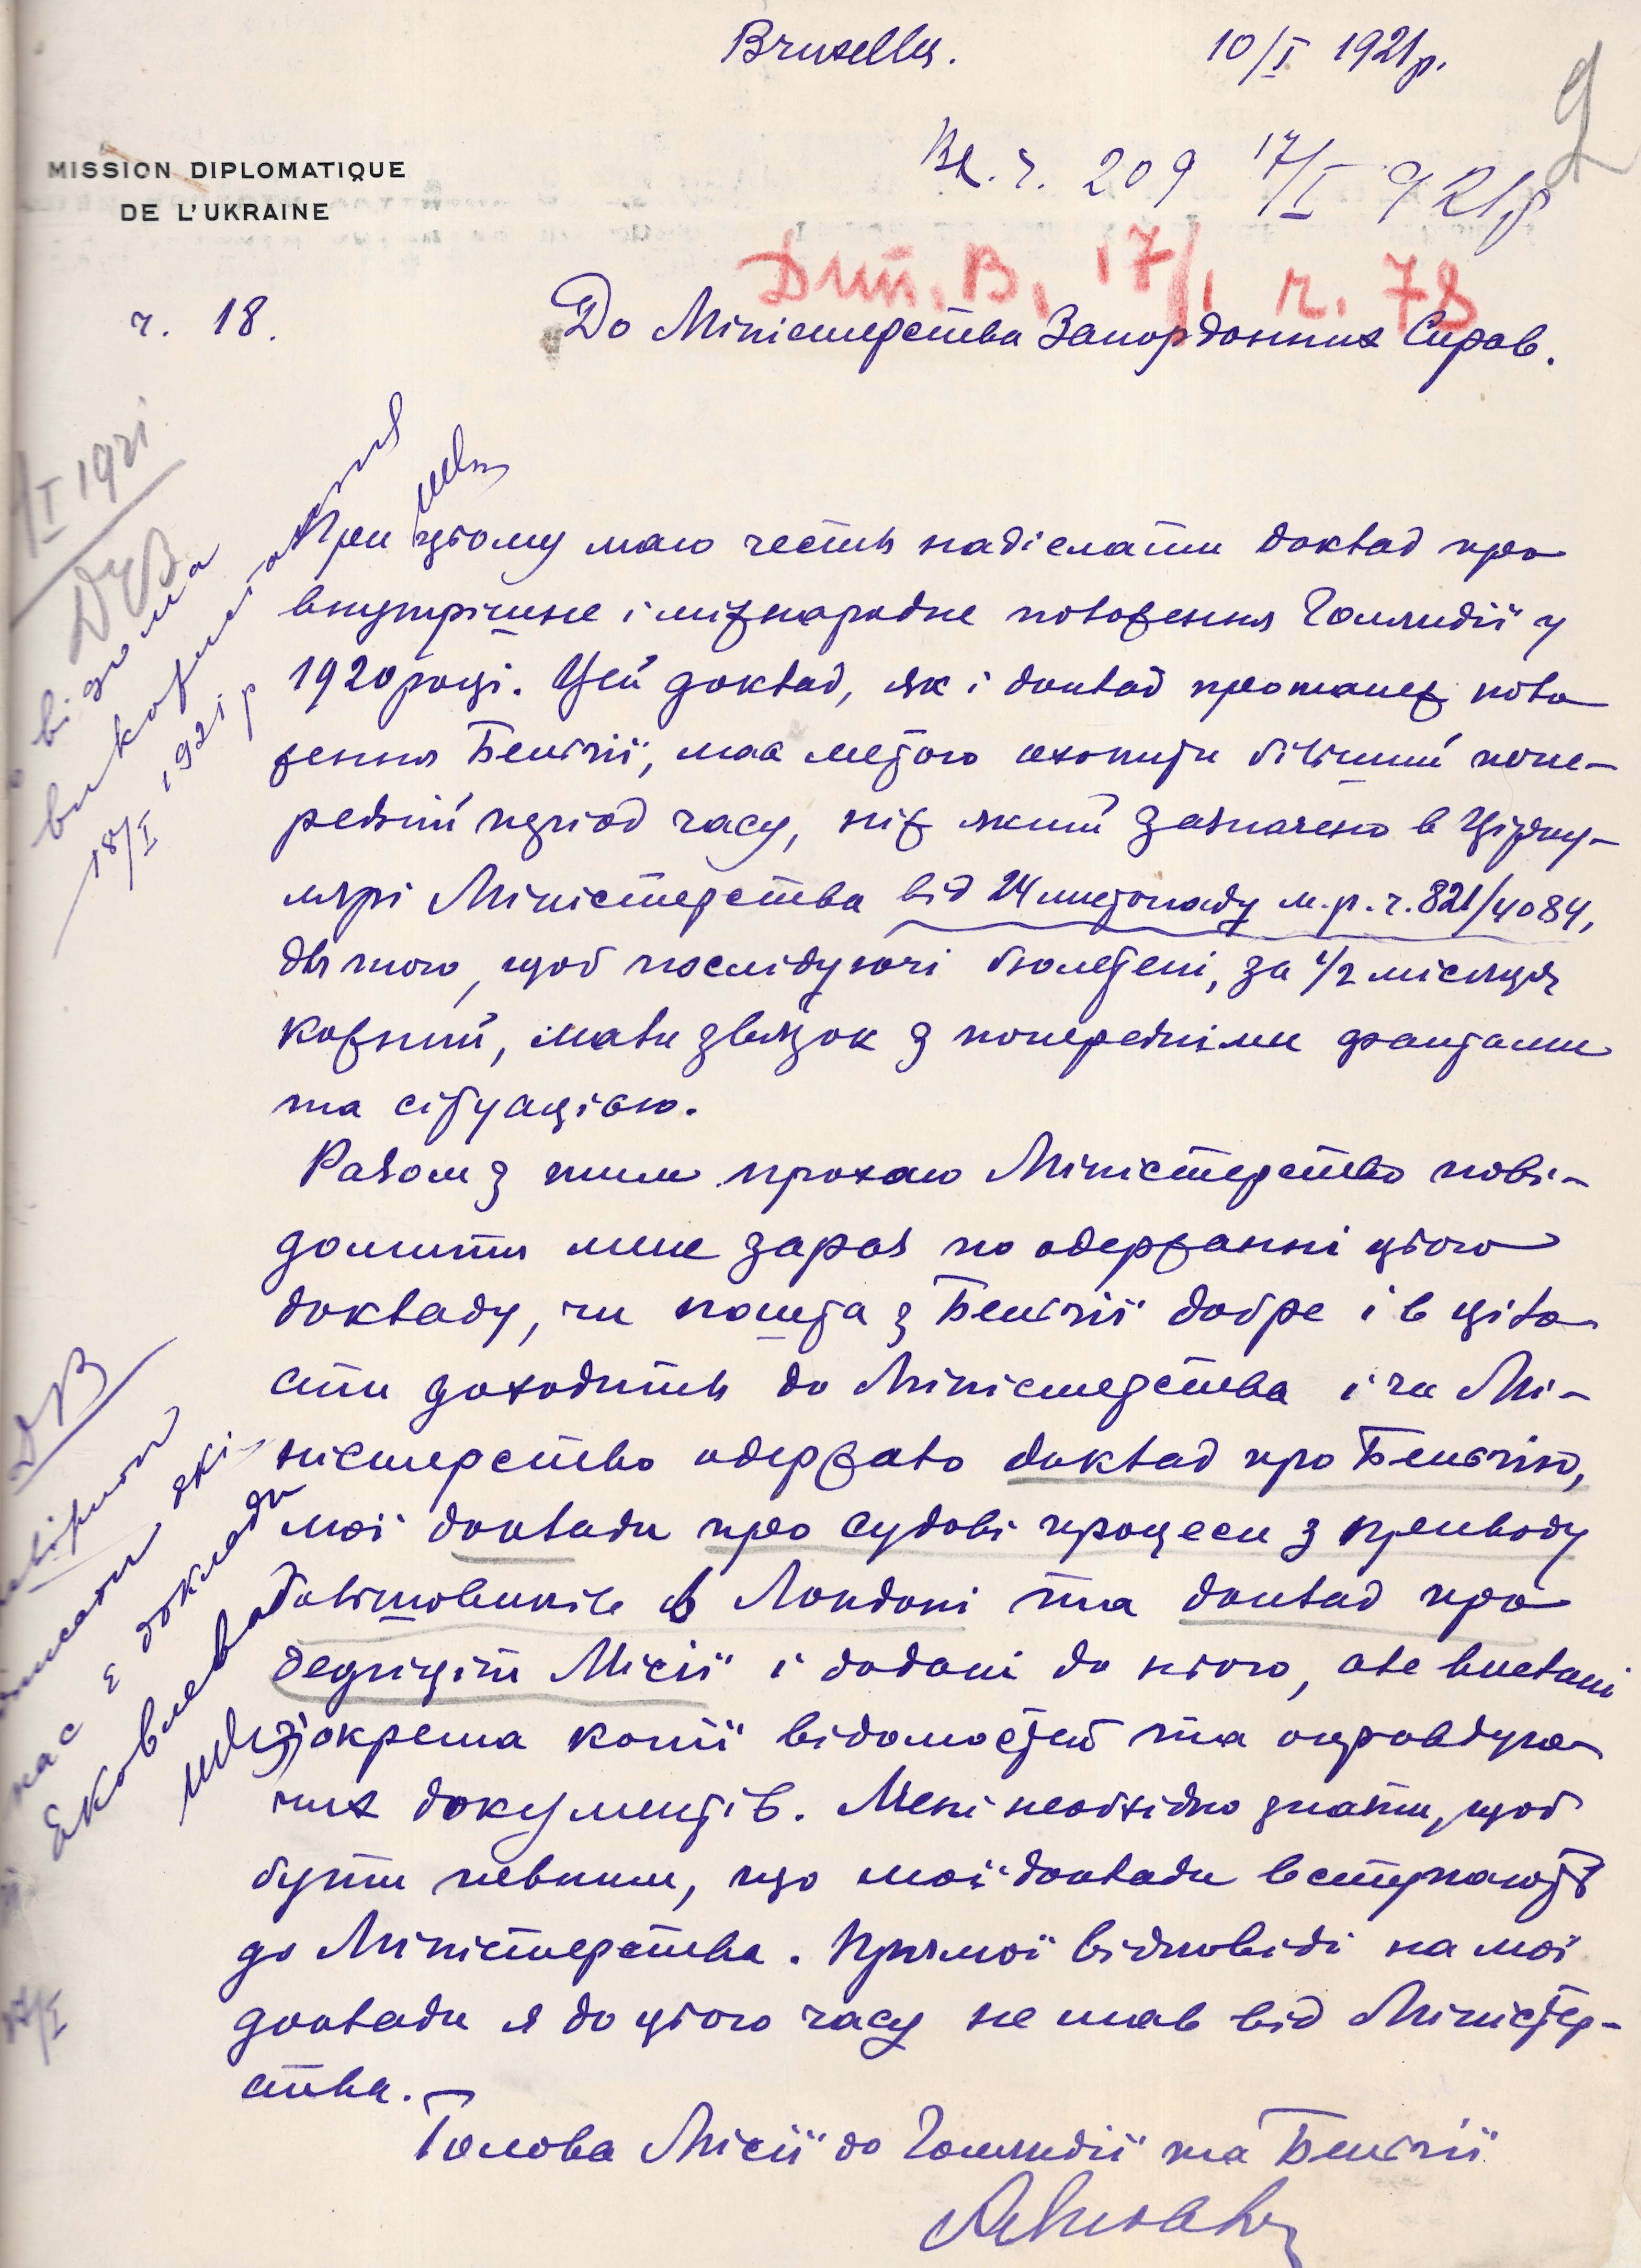 Bruxelles. 10/I 1921 р.
9
Вх. ч. 209 17/I 921 р
MISSION DIPLOMATIQUE
DE L'UKRAINE
Дип. В. 17/I ч. 78
ч. 18.
До Міністерства Закордонних Справ.
При цьому маю честь надіслати доклад про
внутрішнє і міжнародне положення Голляндії у
1920 році. Цей доклад, як і доклад про також поло
ження Бельгії, мав метою охопити більший попе-
редній період часу, ніж який зазначено в Цірку-
лярі Міністерства від 24 листопаду м.р. ч. 821/4084,
для того, щоб послідуючі бюлетені, за 1/2 місяця
кожний, мали звязок з попередніми фактами
та сітуацією.
Разом з тим прохаю Міністерство пові-
домити мене зараз по одержанні цього
докладу, чи пошта з Бельгії добре і в ціло
сти доходить до Міністерства і чи Мі-
ністерство одержало доклад про Бельгію,
мої доклади про судові процеси з приводу
большовиків в Лондоні та доклад про
дефіціт Місії і додані до нього, але вислані
зокрема копії відомостей та оправдую-
чих документів. Мені необхідно знати, щоб
бути певним, що мої доклади вступають
до Міністерства. Прямої відповіді на мої
доклади я до цього часу не мав від Міністер-
ства.
Голова Місії до Голляндії та Бельгії
I 1921
до відома
використання
18/I 1921 р
ДВ
які
нас є доклади
Яковлева